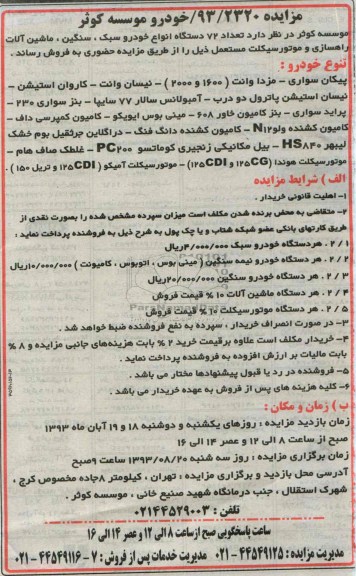 مزایده ۹۳/۲۳۲۰/خودرو موسسه کوثر
موسسه کوثر در نظر دارد تعداد ۷۲ دستگاه انواع خودرو سبک ، سنگین ، ماشین آلات
راهسازی و موتورسیکلت مستعمل ذیل را از طریق مزایده حضوری به فروش رساند .
تنوع خودرو :
پیکان سواری - مزدا وانت ( ۱۶۰۰ و ۲۰۰۰ ) - نیسان وانت - کاروان استیشن -
نیسان استیشن پاترول دو درب - آمبولانس سالار ۷۷ سایپا - بنز سواری ۲۳۰ -
پراید سواری - بنز کامیون خاور ۶۰۸ - مینی بوس ایویکو - کامیون کمپرسی داف -
کامیون کشنده ولوN۱۲ - کامیون کشنده دانگ فنگ - دراگلاین جرثقیل بوم خشک
لیبهر HS۸۴۰ - بیل مکانیکی زنجیری کوماتسو PC۲۰۰ - غلطک صاف هام -
موتورسیکلت هوندا (۱۲۵CG و ۱۲۵CDI) - موتورسیکلت آمیکو ( ۱۲۵CDI و تریل ۱۵۰) .
الف ) شرایط مزایده
۱- اهلیت قانونی خریدار .
۲- متقاضی به محض برنده شدن مکلف است میزان سپرده مشخص شده را بصورت نقدی از
طریق کارتهای بانکی عضو شبکه شتاب و یا چک پول به شرح ذیل به فروشنده پرداخت نماید :
۲/۱ . هردستگاه خودرو سبک ۴/۰۰۰/۰۰۰ریال
۲/۲ . هر دستگاه خودرو نیمه سنگین ( مینی بوس ، اتوبوس ، کامیونت ) ۱۰/۰۰۰/۰۰۰ریال
۲/۳ . هر دستگاه خودرو سنگین ۲۰/۰۰۰/۰۰۰ریال
۲/۴ . هر دستگاه ماشین آلات ۱۰ % قیمت فروش
۲/۵ . هر دستگاه موتورسیکلت ۱۰ % قیمت فروش
۳- در صورت انصراف خریدار ، سپرده به نفع فروشنده ضبط خواهد شد .
۴- خریدار مکلف است علاوه برقیمت خرید ۲ % بابت هزینه‌های جانبی مزایده و ۸ %
بابت مالیات بر ارزش افزوده به فروشنده پرداخت نماید .
۵- فروشنده در رد یا قبول پیشنهادها مختار می باشد .
۶- کلیه هزینه های پس از فروش به عهده خریدار می باشد .
ب ) زمان و مکان :
زمان بازدید مزایده : روزهای یکشنبه و دوشنبه ۱۸ و ۱۹ آبان ماه ۱۳۹۳
صبح از ساعت ۸ الی ۱۲ و عصر ۱۴ الی ۱۶
زمان برگزاری مزایده : روز سه شنبه ۱۳۹۳/۰۸/۲۰ ساعت ۹صبح
آدرس محل بازدید و برگزاری مزایده : تهران ، کیلومتر ۸جاده مخصوص کرج ،
شهرک استقلال ، جنب درمانگاه شهید صنیع خانی ، موسسه کوثر .
تلفن : ۰۲۱۴۴۵۲۹۰۰۳
ساعت پاسخگویی صبح ازساعت ۸ الی ۱۲ و عصر ۱۴ الی ۱۶
مدیریت مزایده : ۴۴۵۴۹۱۲۵ - ۰۲۱ مدیریت خدمات پس از فروش : ۷ - ۴۴۵۴۹۱۱۶ - ۰۲۱